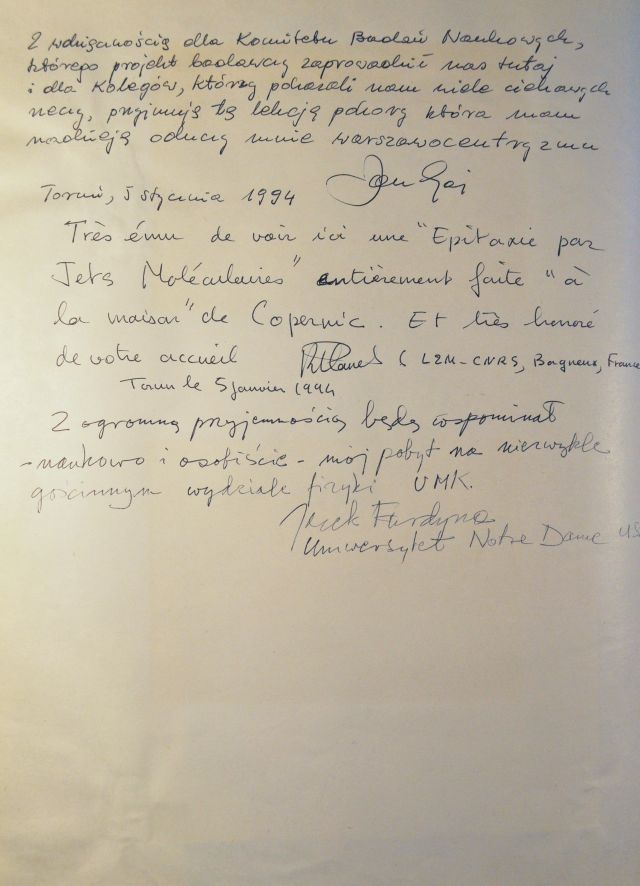 Z wdzięcznością dla Komitetu Badań Naukowych,
którego projekt badawczy zaprowadził nas tutaj
i dla Kolegów, którzy pokazali nam wiele ciekawych
rzeczy, przyjmuję tą lekcję pokory która mam
nadzieję oduczy mnie warszawocentryzmu
Jan Gaj
Toruń, 5 stycznia 1994
Très ému de voir ici une "Epitaxie par
Jets Moléculaires" entièrement faite "à
la maison" de Copernic. Et très honoré
de votre accueil (L2M-CNRS, Bagneux, France
Torun le 5 janvier 1994
Z ogromną przyjemnością będę wspominał
-naukowo i osobiście- mój pobyt na niezwykle
gościnnym wydziale fizyki UMK.
Jacek Furdyna
Uniwersytet Notre Dame US